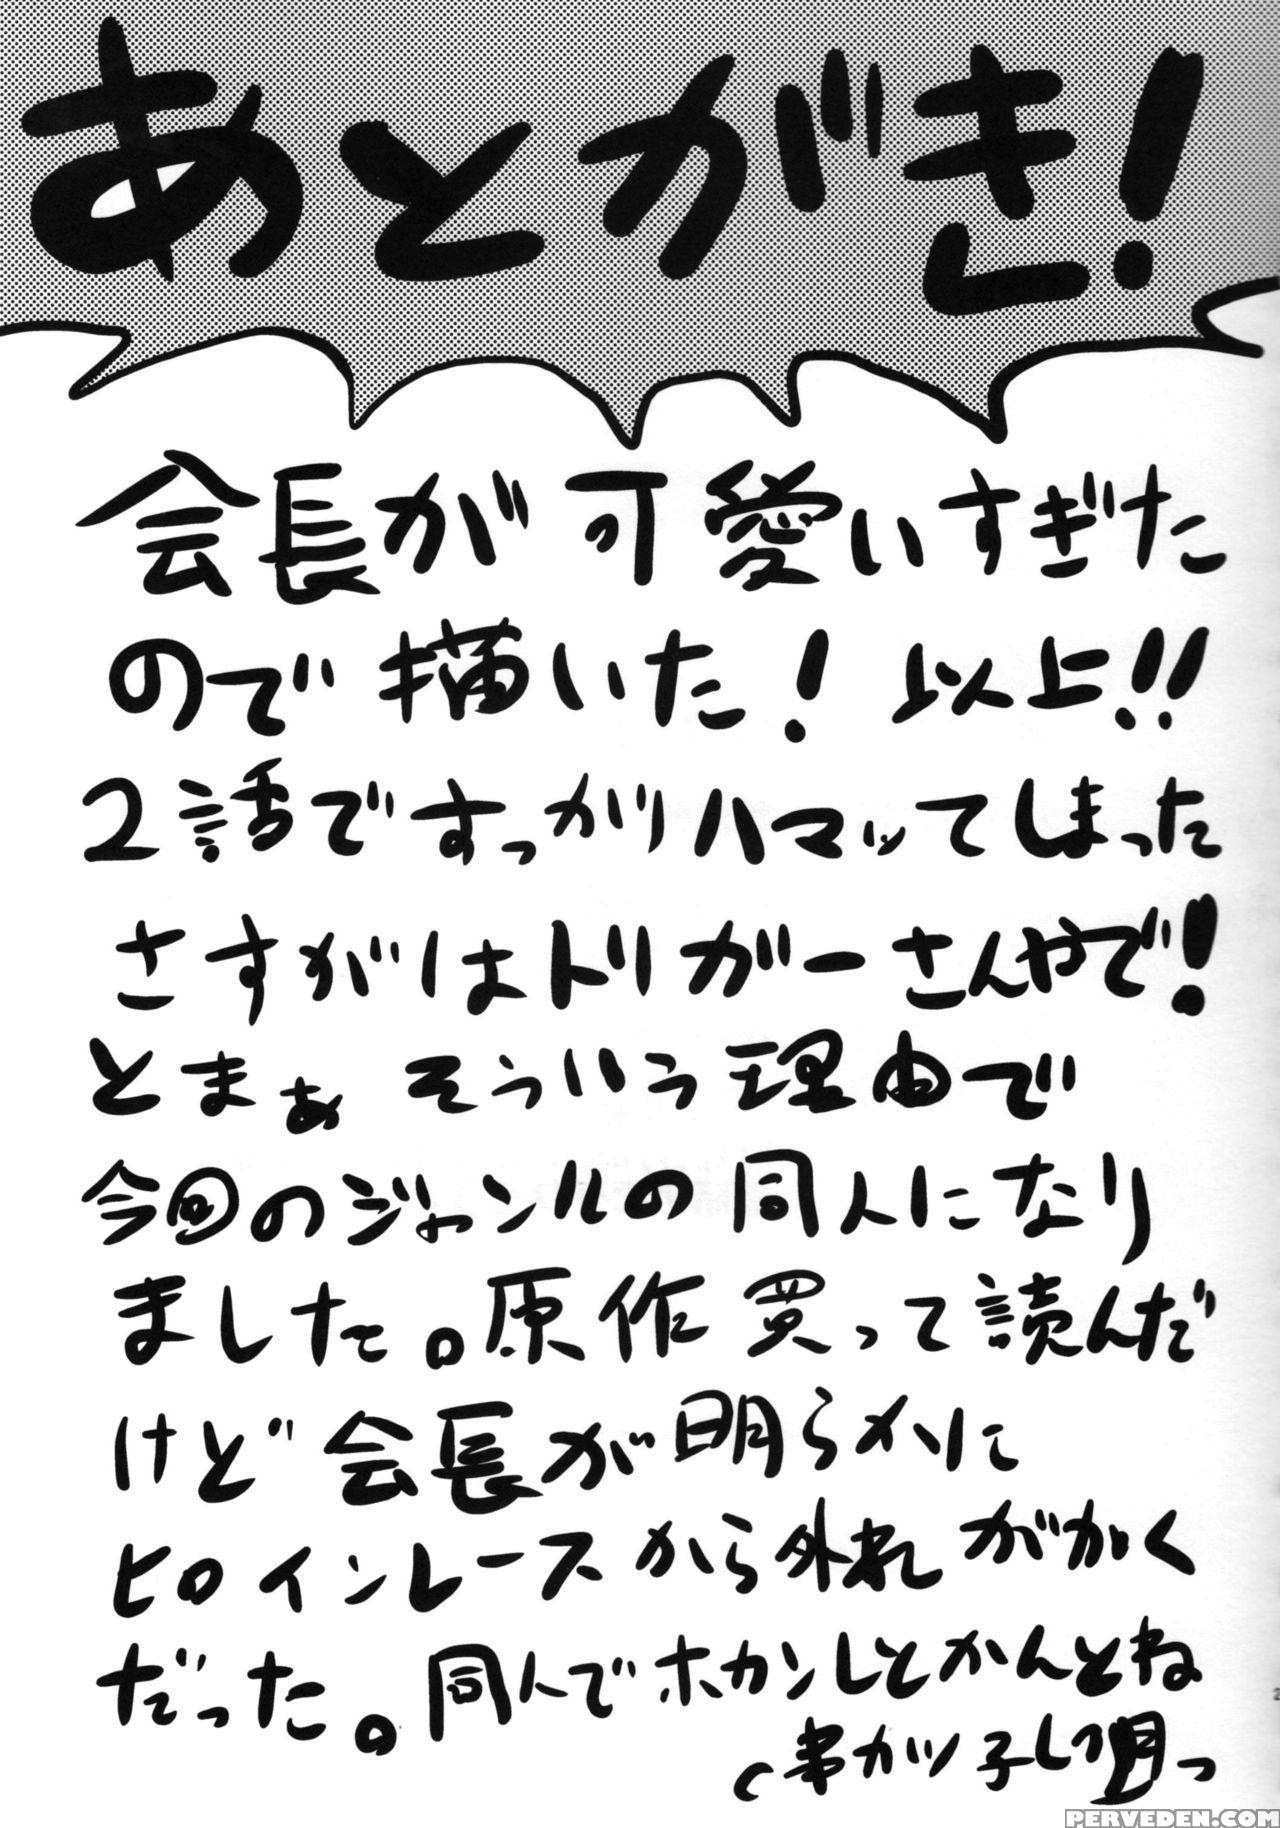 あとがき!
会長が可愛いすぎた
ので描いた! 以上!!
2話ですっかりハマッてしまった
さすがはトリガーさんやで!
とまぁ そういう理由で
今回のジャンルの同人になり
ました。原作買って読んだ
けど会長が明らかに
ヒロインレースから外れ がかく
だった。同人でホカンしとかんとね
串カツ子
2
PERVEDEN.COM